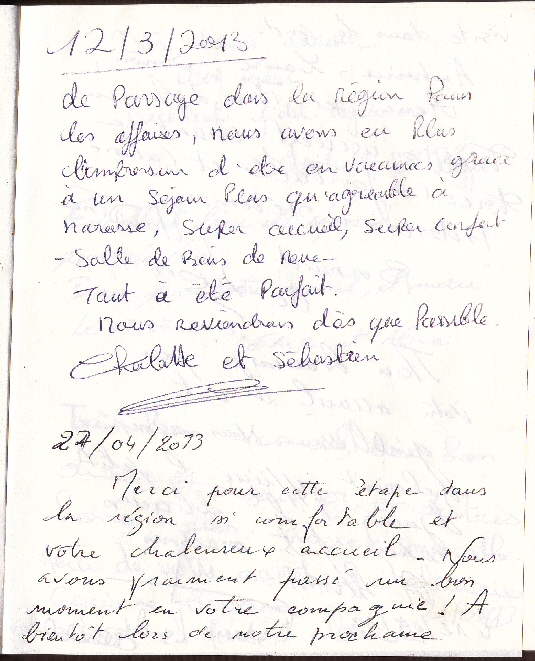 12/3/2013
de Passage dans la région Pour
les affaires, nous avons eu Plus
l'impression d'être en vacances grace
à un Séjour Plus qu'agréable à
Narasse, Super accueil, Super confort
- Salle de Bains de Reve -
Tout à été Parfait.
Nous reviendrons dès que Possible.
et Sébastien
27/04/2013
Merci pour cette étape dans
la région si confortable et
votre chaleureux accueil. Nous
avons vraiment passé un bon
moment en votre compagnie ! A
bientôt lors de notre prochaine